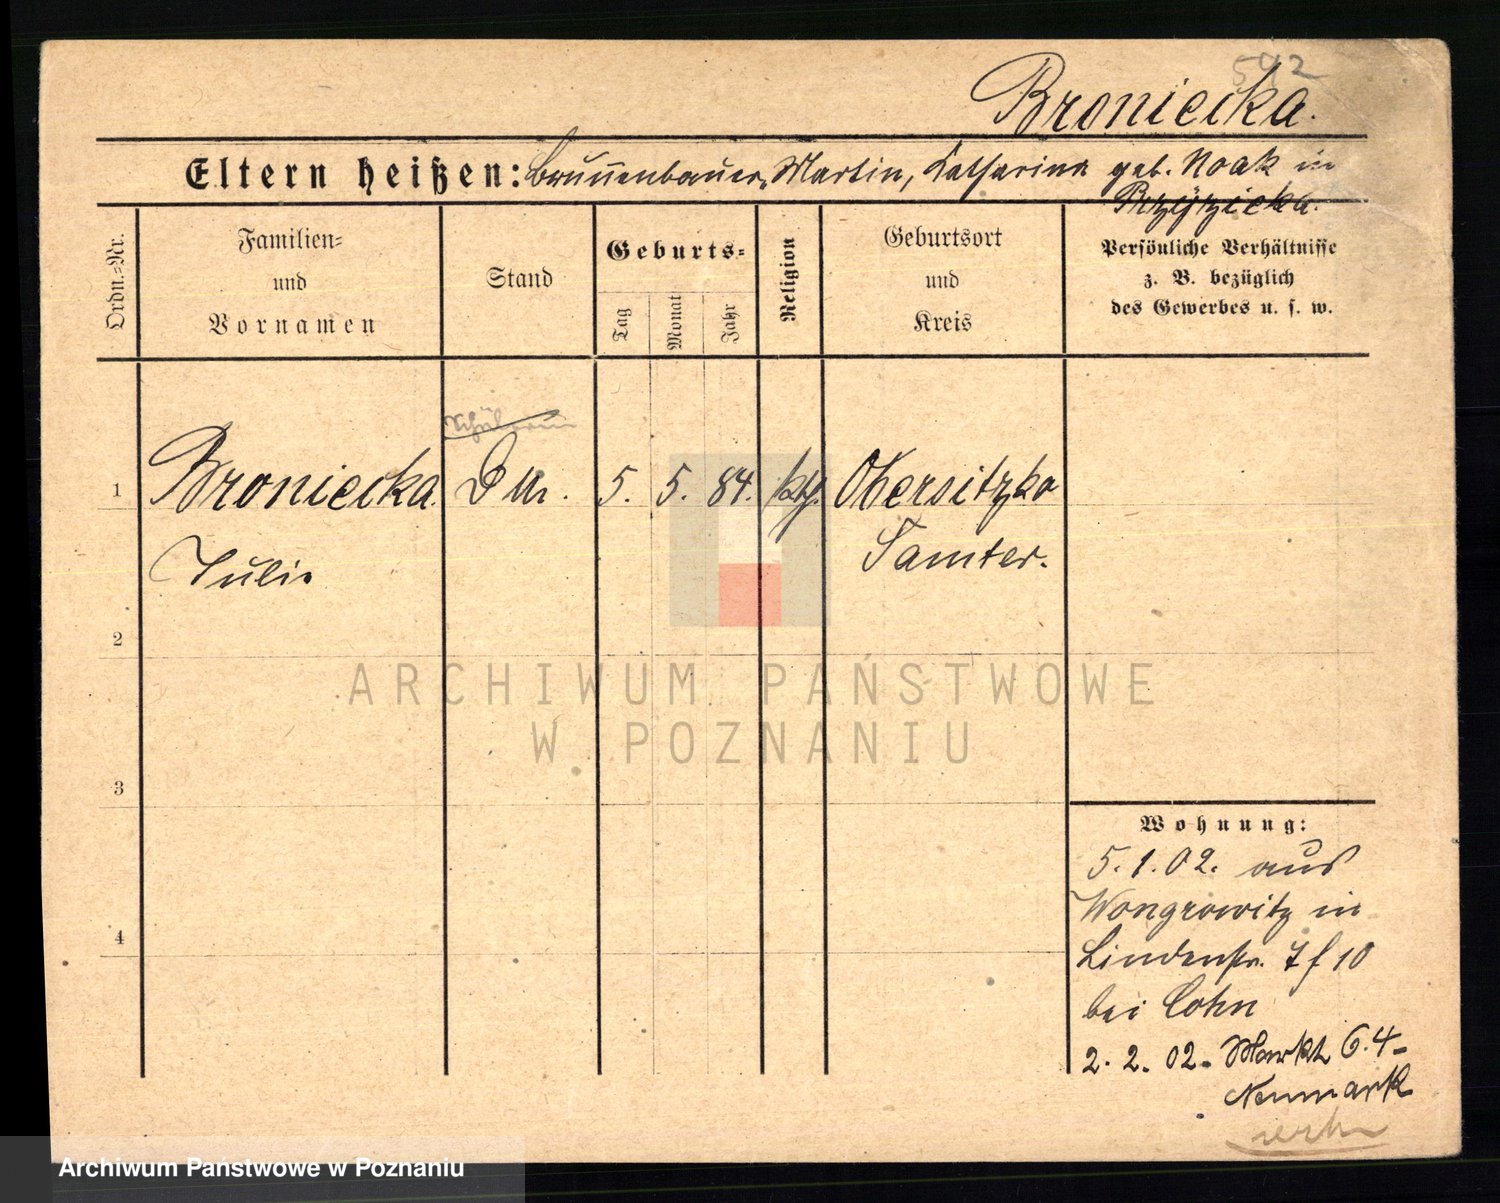 542
Broniecka.
Eltern heißen: Brunnenbauer, Martin, Katharina geb. Noak in
Ordn.-Nr.
Familien-
und
Vornamen
Stand
Geburts-
Tag
Monat
Jahr
Religion
Geburtsort
und
Kreis
Persönliche Verhältnisse
z. B. bezüglich
des Gewerbes u. s. w.
1 Broniecka. 5. 5. 84. kth. Obersitzko
Julie Samter.
2
3
4
Wohnung:
5.1.02. aus
Wongrowitz in
Lindenstr. 7 f 10
bei Cohn
2. 2. 02. Markt 6.4-
Neumark
ARCHIWUM PAŃSTWOWE
W POZNANIU
Archiwum Państwowe w Poznaniu